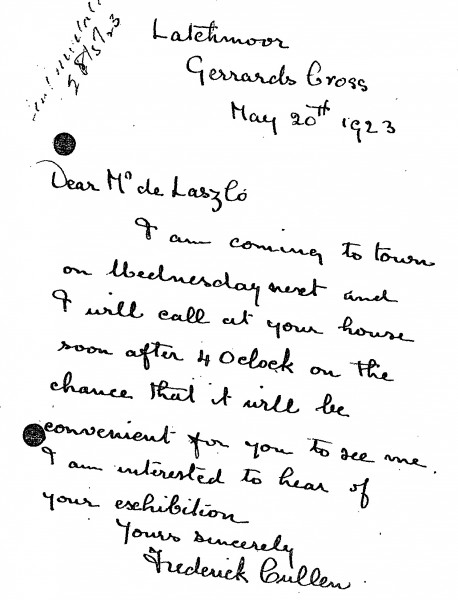 28/5/23
Latchmoor
Gerrards Cross
May 20th 1923
Dear Mr de Laszló
I am coming to town
on Wednesday next and
I will call at your house
soon after 4 Oclock on the
chance that it will be
convenient for you to see me.
I am interested to hear of
your exhibition
Yours sincerely
Frederick Cullen